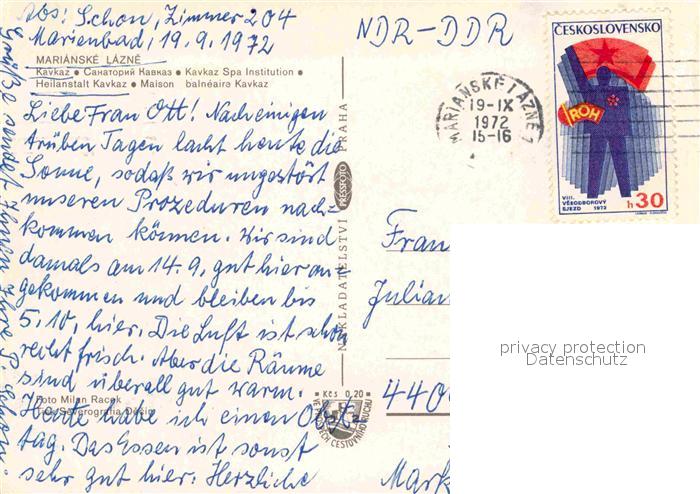 Abs: Schon, Zimmer 204
Marienbad, 19.9.1972
NDR-DDR
MARIÁNSKÉ LÁZNĚ
Kavkaz • Санаторий Кавказ • Kavkaz Spa Institution •
Heilanstalt Kavkaz • Maison balnéaire Kavkaz
Liebe Frau Ott! Nach einigen
trüben Tagen lacht heute die
Sonne, sodaß wir ungestört
unseren Prozeduren nach-
kommen können. Wir sind
damals am 14.9. gut hier an-
gekommen und bleiben bis
5.10. hier. Die Luft ist schon
recht frisch. Aber die Räume
sind überall gut warm.
Heute habe ich einen Obst-
tag. Das Essen ist sonst
sehr gut hier. Herzliche
Grüße sendet Ihnen Ihre
Foto Milan Racek
Severografia Děčín
NAKLADATELSTVÍ PRAHA
PRESSFOTO
Kčs 0,20
VE PROSPĚCH CESTOVNÍHO RUCHU
MARIÁNSKÉ LÁZNĚ
19-IX
1972
15-16
ČESKOSLOVENSKO
ROH
VIII.
VŠEODBOROVÝ
SJEZD 1972
h 30
Frau
Julian
440
Mark
privacy protection
Datenschutz